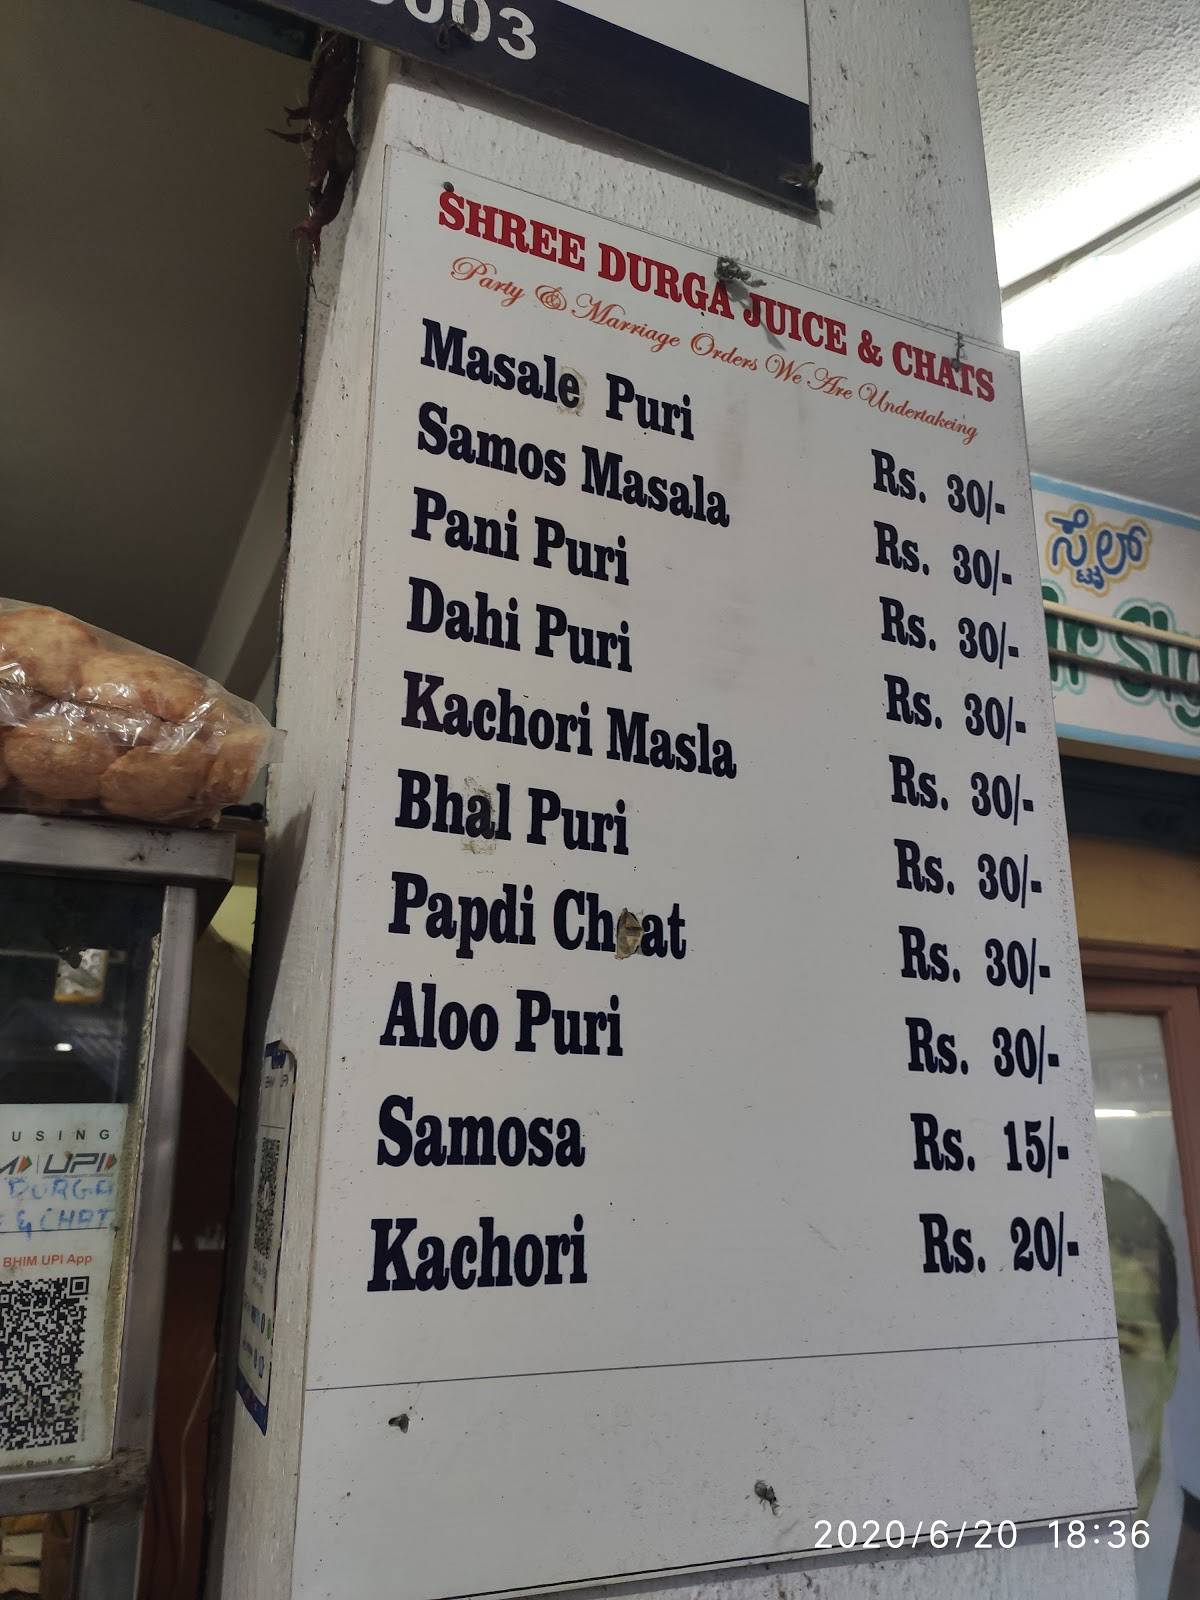 003
SHREE DURGA JUICE & CHATS
Party & Marriage Orders We Are Undertakeing
Masale Puri Rs. 30/-
Samos Masala Rs. 30/-
Pani Puri Rs. 30/-
Dahi Puri Rs. 30/-
Kachori Masla Rs. 30/-
Bhal Puri Rs. 30/-
Papdi Chaat Rs. 30/-
Aloo Puri Rs. 30/-
Samosa Rs. 15/-
Kachori Rs. 20/-
ಸ್ಟೈಲ್
USING
UPI
DURGA
& CHAT
BHIM UPI App
2020/6/20 18:36